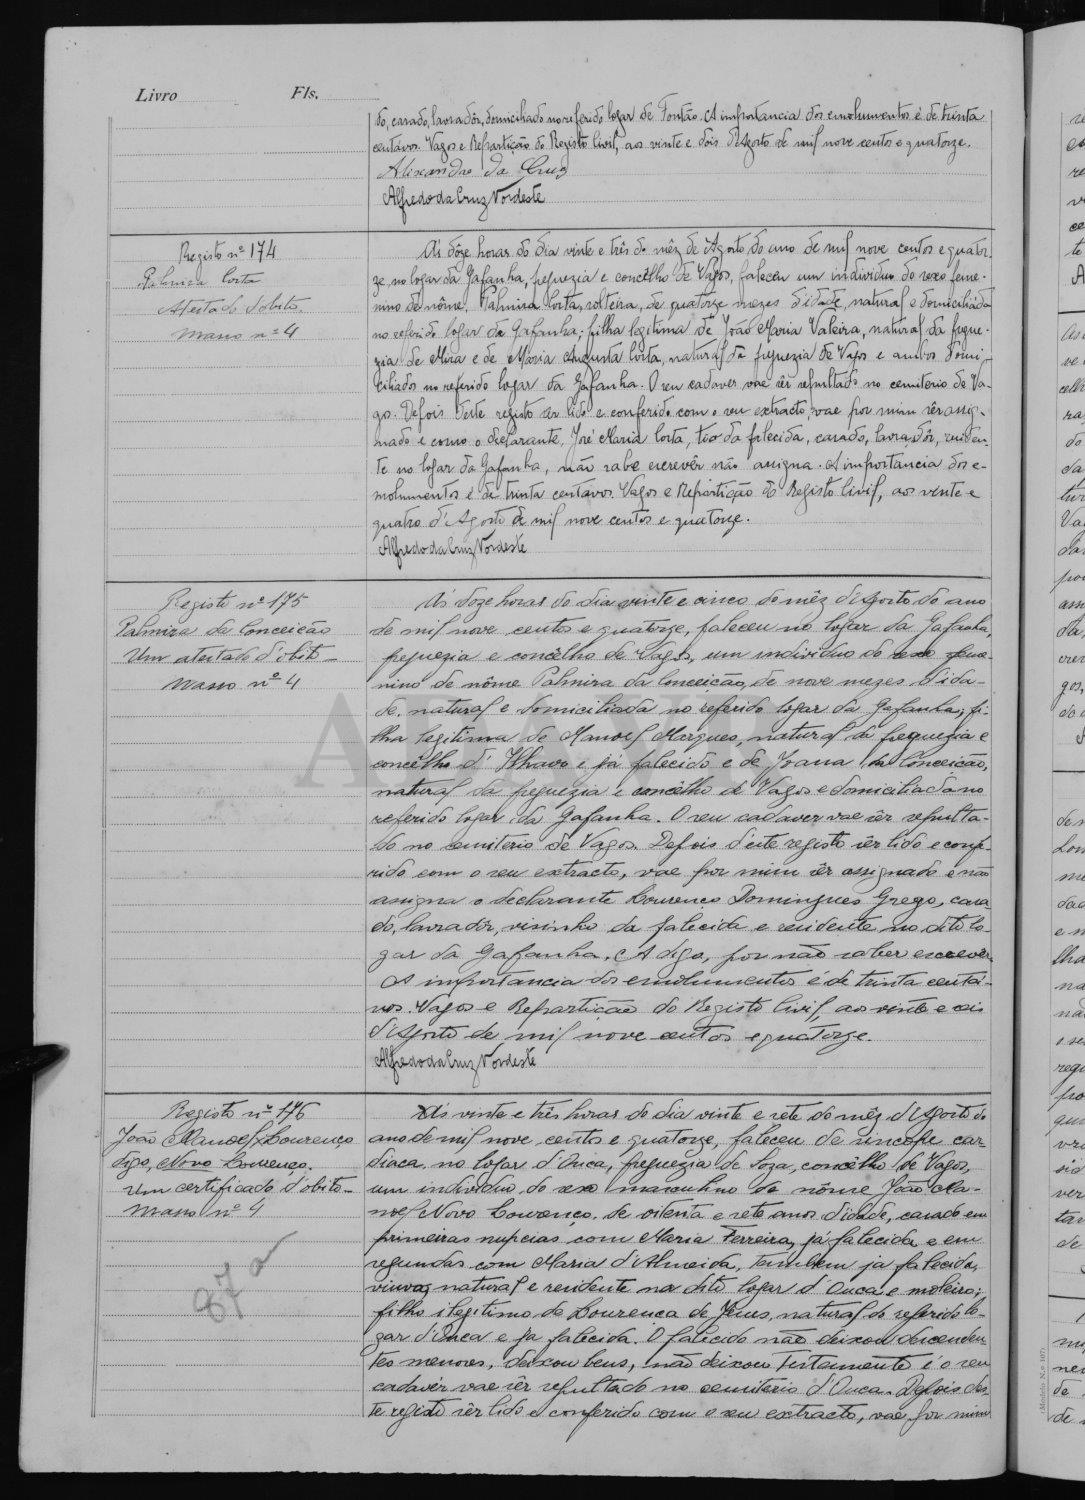 Livro Fls.
do, casado, lavradôr, domiciliado no referido logar de Fontão. A importancia dos emolumentos é de trinta
centavos. Vagos e Repartição do Registo Civil, aos vinte e dois d'Agosto de mil nove centos e quatorze.
Alixandre da Cruz
Alfredo da Cruz Nordeste
Registo nº 174
Palmira Corta
Atestado d'obito.
Masso nº 4
Ás dôze horas do dia vinte e três do mêz de Agosto do ano de mil nove centos e quator-
ze, no logar da Gafanha, freguezia e concêlho de Vagos, faleceu um individuo do sexo femi-
nino de nôme, Palmira Corta, solteira, de quatorze mezes d'idade, natural e domiciliáda
no referido logar da Gafanha; filha legitima de João Maria Valeira, natural da fregue-
zia de Mira e de Maria Augusta Corta, natural da freguezia de Vagos e ambos domi-
ciliados no referido logar da Gafanha. O seu cadaver vae sêr sepultado no cemiterio de Va-
gos. Depois deste registo sêr lido e conferido com o seu extracto, vae por mim sêr assig-
nado e como o declarante, José Maria Corta, tio da falecida, casado, lavradôr, residen-
te no logar da Gafanha, não sabe escrevêr não assigna. A importancia dos e-
molumentos é de trinta centavos. Vagos e Repartição do Registo Civil, aos vinte e
quatro d'Agosto de mil nove centos e quatorze.
Alfredo da Cruz Nordeste
Registo nº 175
Palmira da Conceição
Um atestado d'obito
Masso nº 4
Ás doze horas do dia vinte e cinco do mêz d'Agosto do ano
de mil nove centos e quatorze, faleceu no logar da Gafanha,
freguezia e concêlho de Vagos, um individuo do sexo femi-
nino de nôme Palmira da Conceição, de nove mezes d'ida-
de, natural e domiciliada no referido logar da Gafanha; fi-
lha legitima de Manoel Marques, natural da freguezia e
concêlho d'Ilhavo e já falecido e de Joana da Conceição,
natural da freguezia e concêlho de Vagos e domiciliada no
referido logar da Gafanha. O seu cadaver vae sêr sepulta-
do no cemiterio de Vagos. Depois d'este registo sêr lido e confe-
rido com o seu extracto, vae por mim sêr assignado e não
assigna o declarante Lourenço Domingues Grego, casa-
do, lavradôr, visinho da falecida e residente no dito lo-
gar da Gafanha. A digo, por não saber escrever.
A importancia dos emolumentos é de trinta centá-
vos. Vagos e Repartição do Registo Civil, aos vinte e seis
d'Agosto de mil nove centos e quatorze.
Alfredo da Cruz Nordeste
Registo nº 176
João Manoel Lourenço
digo, Novo Lourenço.
Um certificado d'obito
Masso nº 4
87 a
Ás vinte e três horas do dia vinte e sete do mêz d'Agosto do
ano de mil nove centos e quatorze, faleceu de sincópe car-
diaca, no logar d'Ouca, freguezia de Soza, concêlho de Vagos,
um individuo do sexo masculino de nôme João Ma-
noel Novo Lourenço, de oitenta e sete anos d'idade, casado em
primeiras nupcias com Maria Ferreira, já falecida e em
segundas com Maria d'Almeida, tambem já falecida,
viuvo, natural e residente no dito logar d'Ouca e moleiro;
filho ilegitimo de Lourenca de Jesus, natural do referido lo-
gar d'Ouca e já falecida. O falecido não deixou descenden-
tes menores, deixou bens, não deixou testamento é o seu
cadavér vae sêr sepultado no cemiterio d'Ouca. Depois des-
te registo sêr lido e conferido com o seu extracto, vae por mim